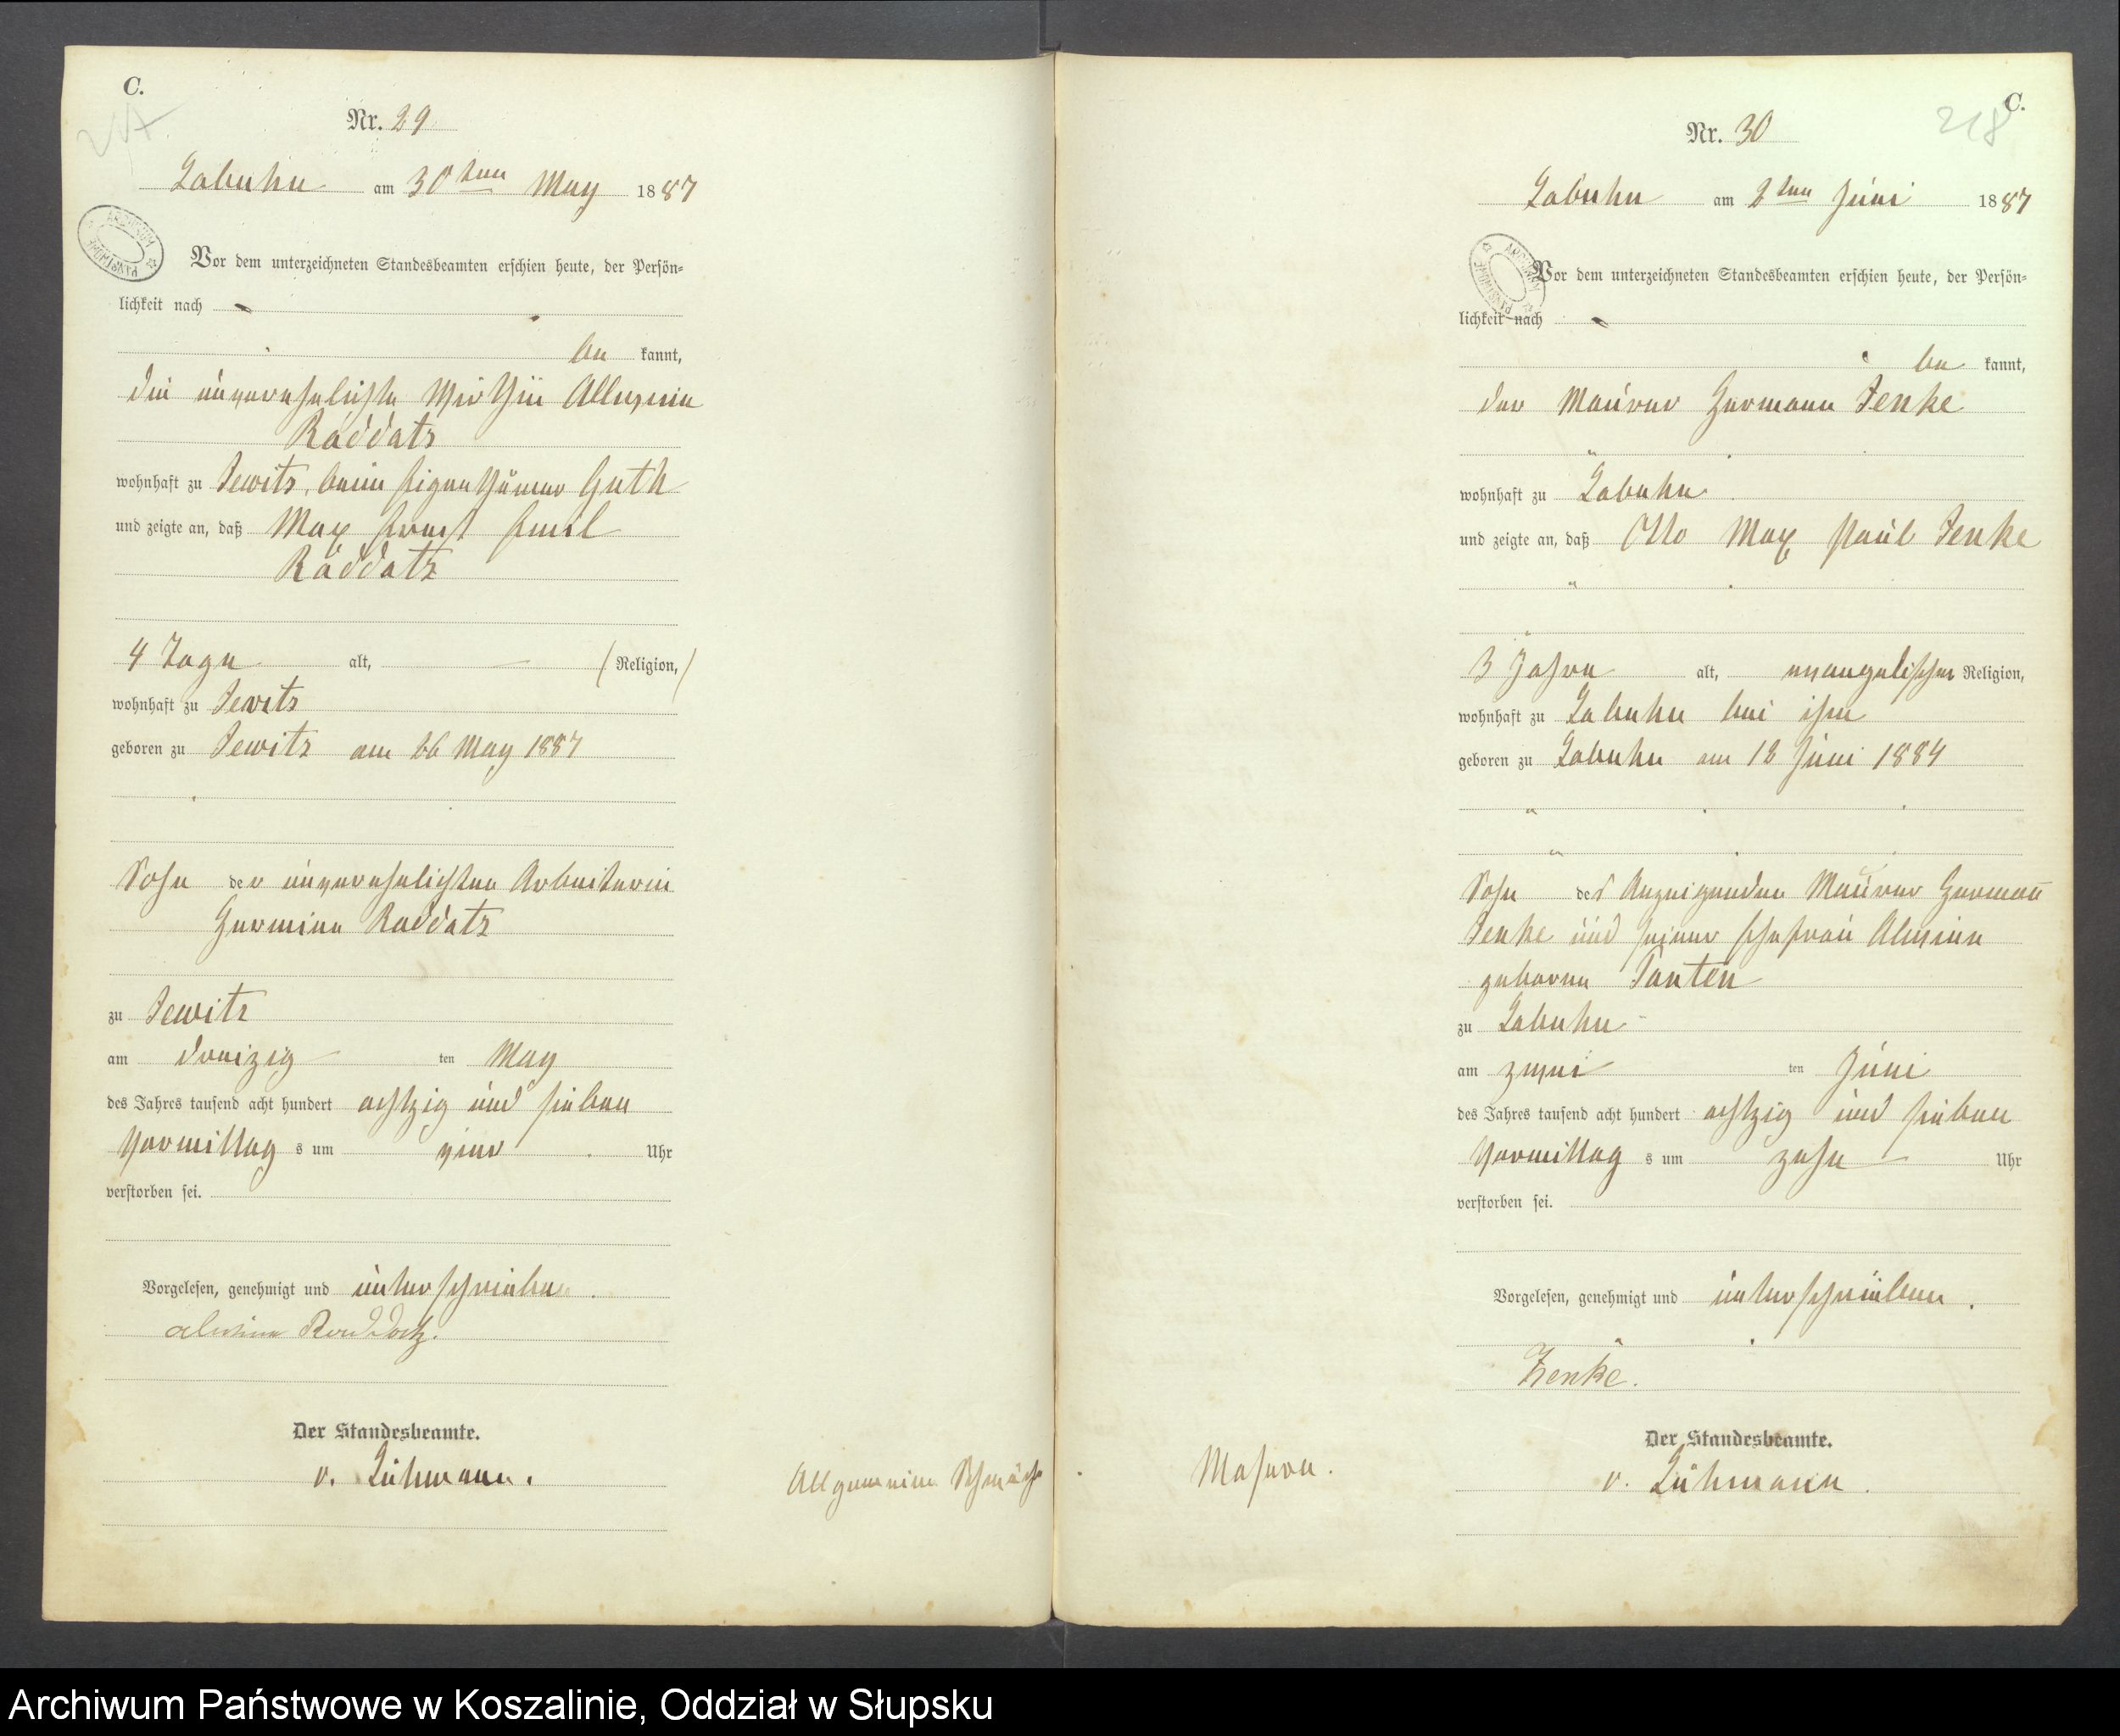 C.
Nr. 29
Labuhn am 30ten May 1887
Vor dem unterzeichneten Standesbeamten erschien heute, der Persön-
lichkeit nach
be kannt,
die unverehelichte Alwine
Raddatz
wohnhaft zu Jewitz, beim Eigenthümer Guth
und zeigte an, daß Max Ernst Emil
Raddatz
4 Tage alt, (Religion,)
wohnhaft zu Jewitz
geboren zu Jewitz am 26 May 1887
Sohn der unverehelichten Arbeiterin
Hermine Raddatz
zu Jewitz
am dreizig ten May
des Jahres tausend acht hundert achtzig und sieben
Vormittag s um vier Uhr
verstorben sei.
Vorgelesen, genehmigt und unterschrieben.
Alwine Raddatz.
Der Standesbeamte.
v. Lühmann.
Allgemeine Schwäche
218
C.
Nr. 30
Labuhn am 2ten Juni 1887
Vor dem unterzeichneten Standesbeamten erschien heute, der Persön-
lichkeit nach
be kannt,
der Maurer Hermann Jenke
wohnhaft zu Labuhn
und zeigte an, daß Otto Max Paul Jenke
3 Jahre alt, evangelischer Religion,
wohnhaft zu Labuhn bei ihm
geboren zu Labuhn am 12 Juni 1884
Sohn des Anzeigenden Maurer Herman̄
Jenke und seiner Ehefrau Alwine
geborene Janten
zu Labuhn
am zwei ten Juni
des Jahres tausend acht hundert achtzig und sieben
Vormittag s um zehn Uhr
verstorben sei.
Vorgelesen, genehmigt und unterschrieben.
Jenke.
Der Standesbeamte.
v. Lühmann.
Masern.
Archiwum Państwowe w Koszalinie, Oddział w Słupsku